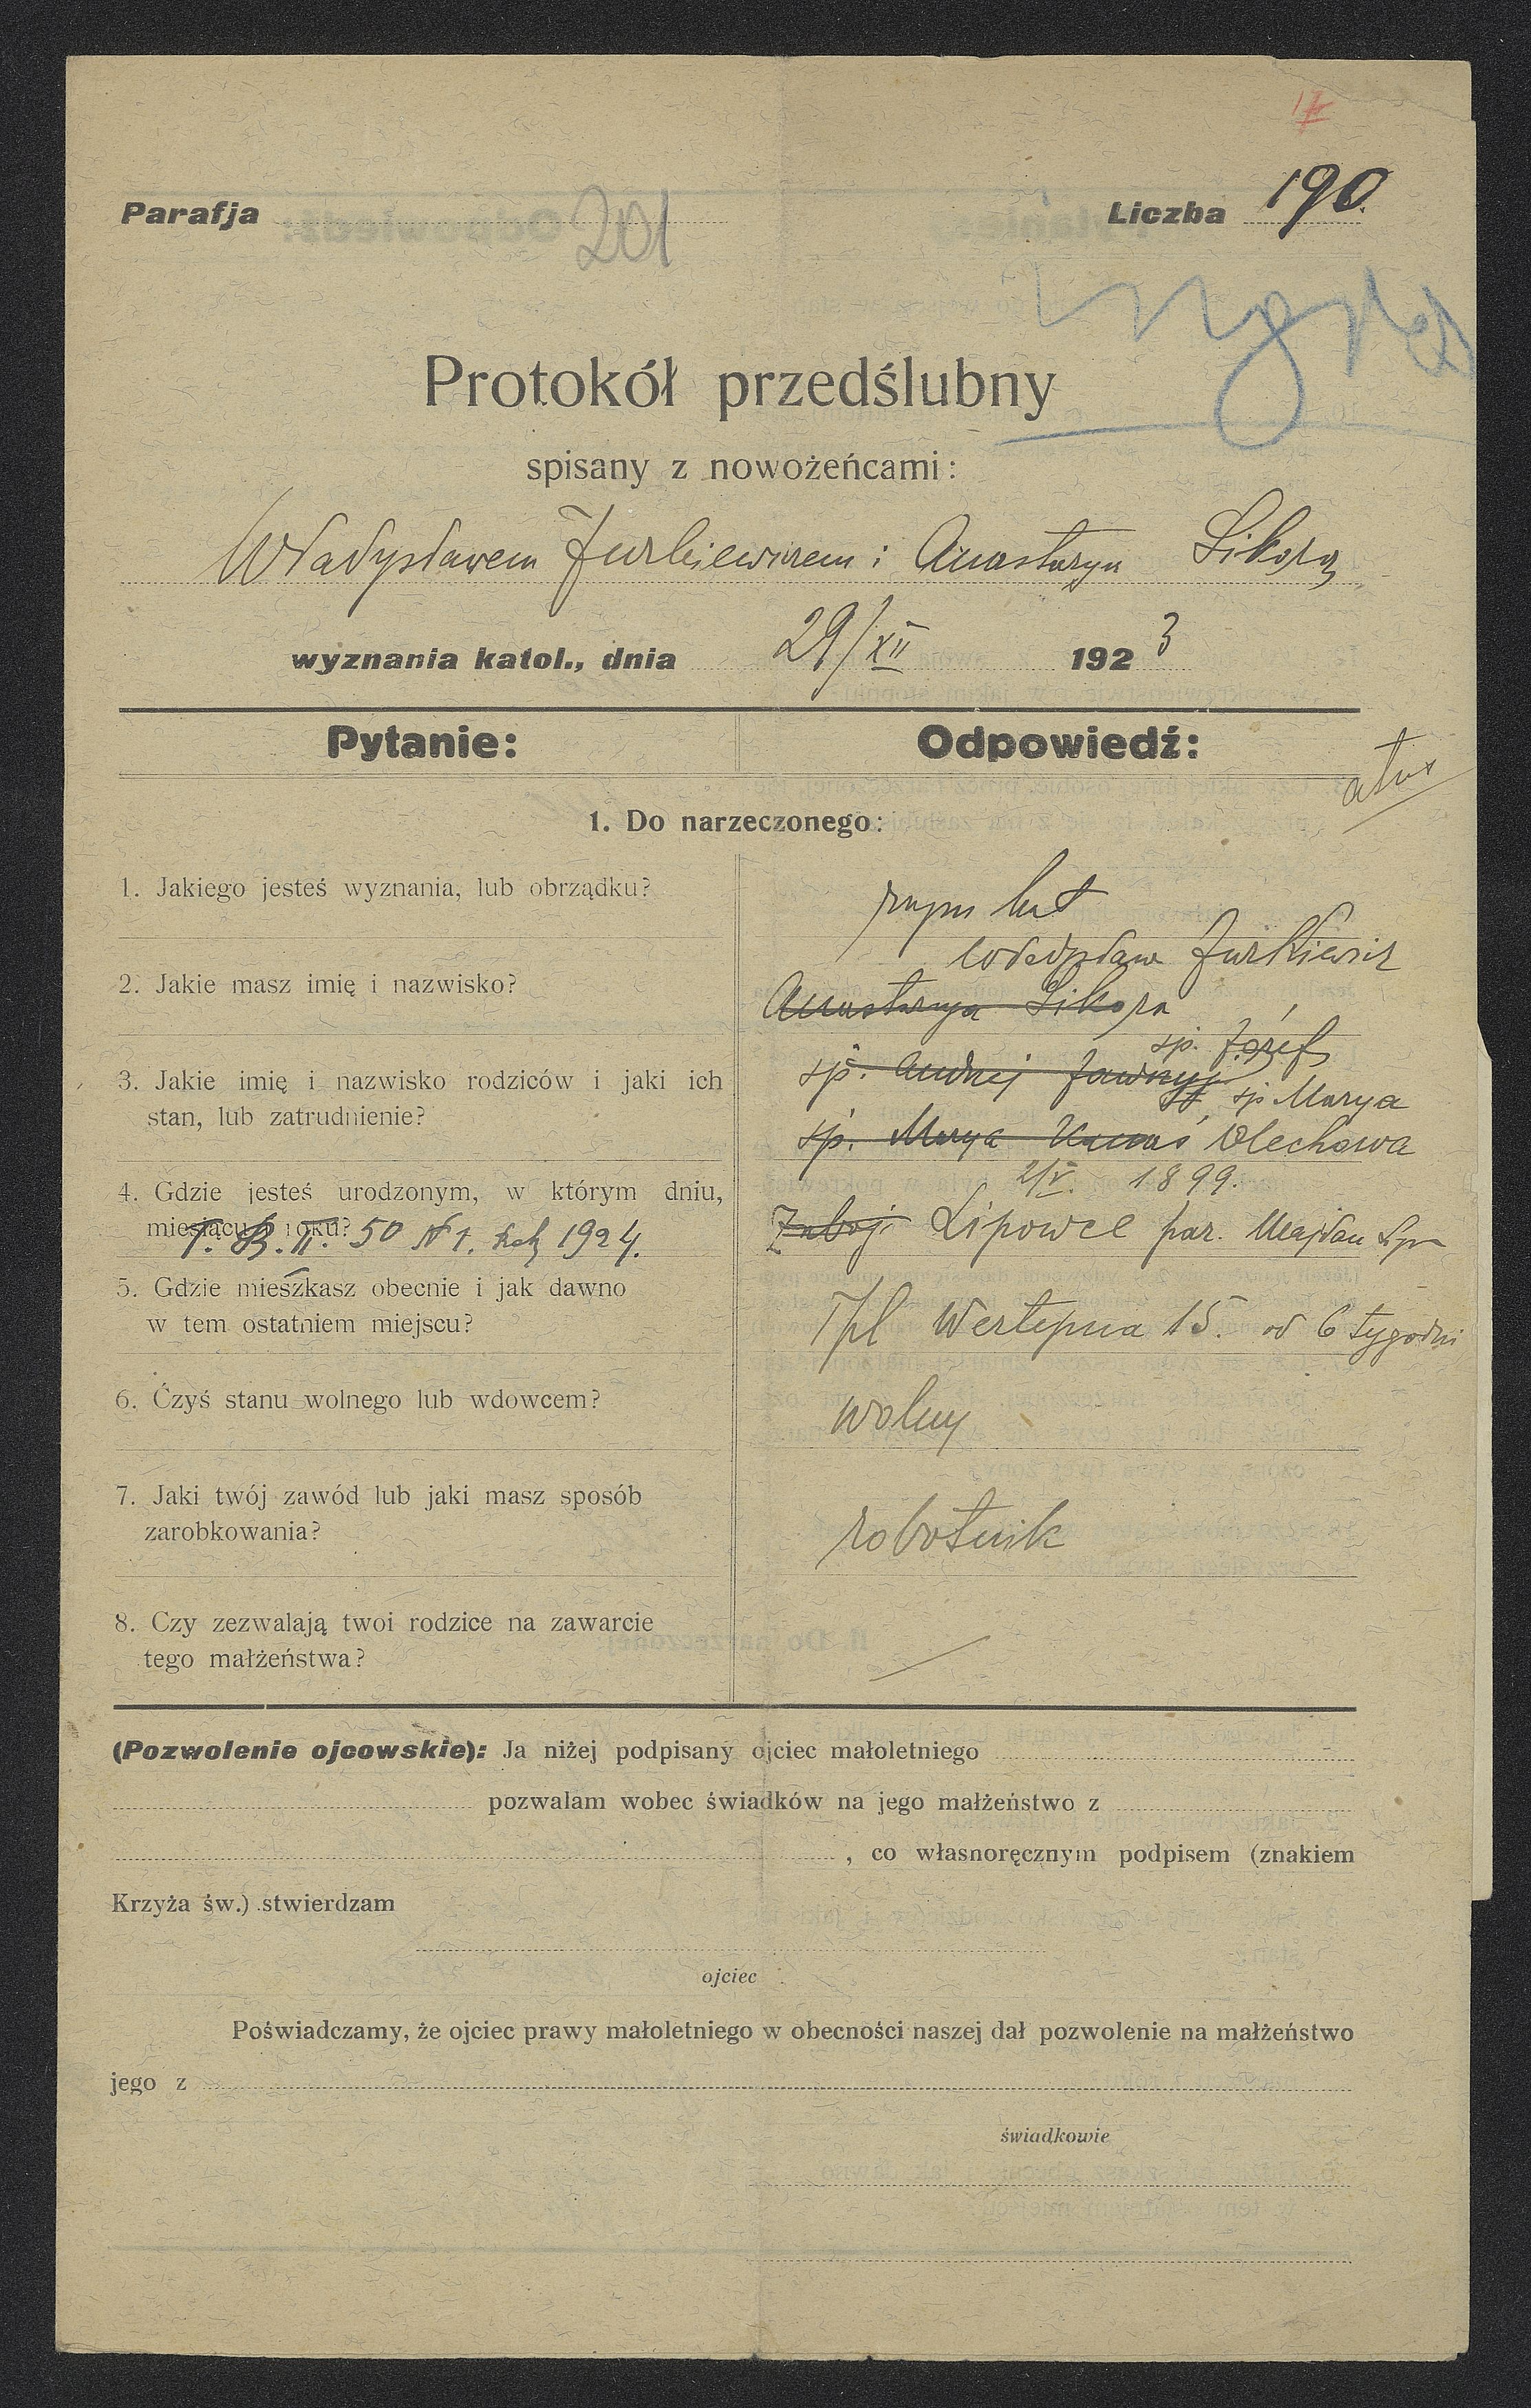 Parafja 201 Liczba 190.
Protokół przedślubny
spisany z nowożeńcami:
Władysławem Jurkiewiczem i Anastazyą Sikorą
wyznania katol., dnia 29/XII 1923
Pytanie: Odpowiedź:
1. Do narzeczonego:
1. Jakiego jesteś wyznania, lub obrządku?
rzym kat
2. Jakie masz imię i nazwisko?
Władysław Jurkiewicz
Anastazya Sikora
3. Jakie imię i nazwisko rodziców i jaki ich
stan, lub zatrudnienie?
śp. Józef
śp. Andrzej
śp Marya
śp. Marya Olechowa
4. Gdzie jesteś urodzonym, w którym dniu,
miesiącu i roku?
2/V. 1899.
Lipowce par. Majdan
T. B. II. 50 N 1. 1924.
5. Gdzie mieszkasz obecnie i jak dawno
w tem ostatniem miejscu?
Tpl Wertepna 15. od 6 tygodni
6. Czyś stanu wolnego lub wdowcem?
wolny
7. Jaki twój zawód lub jaki masz sposób
zarobkowania?
robotnik
8. Czy zezwalają twoi rodzice na zawarcie
tego małżeństwa?
(Pozwolenie ojcowskie): Ja niżej podpisany ojciec małoletniego
pozwalam wobec świadków na jego małżeństwo z
, co własnoręcznym podpisem (znakiem
Krzyża św.) stwierdzam
ojciec
Poświadczamy, że ojciec prawy małoletniego w obecności naszej dał pozwolenie na małżeństwo
jego z
świadkowie